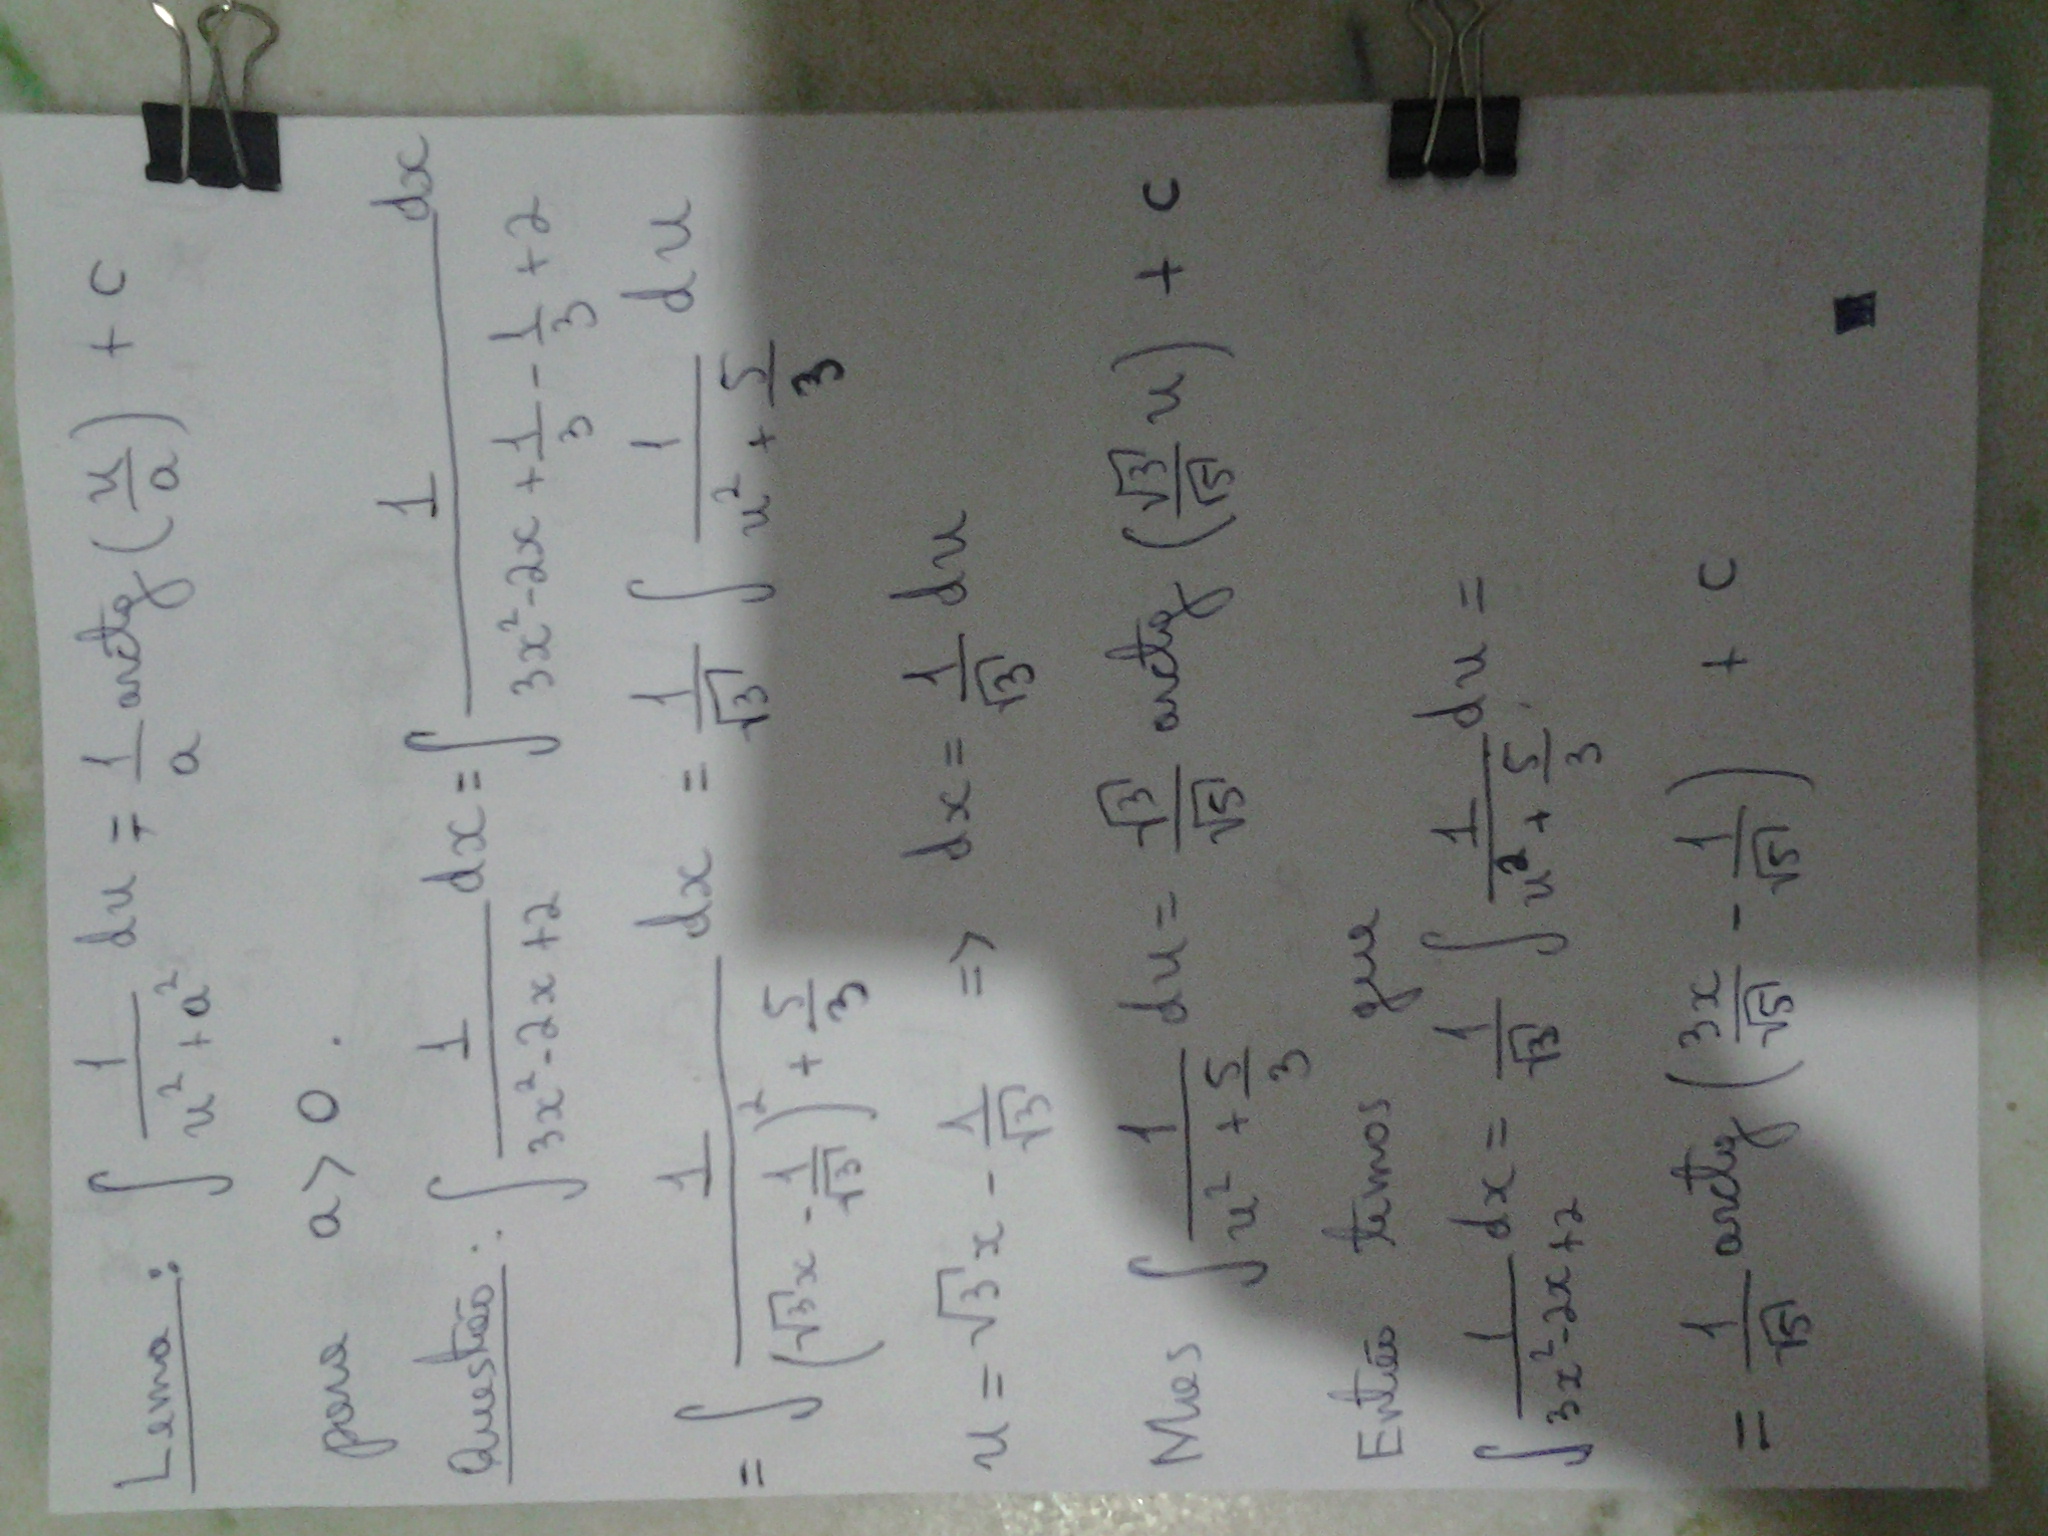 Lema: ∫ 1/(u² + a²) du = 1/a arctg (u/a) + c
para a > 0.
Questão: ∫ 1/(3x² - 2x + 2) dx = ∫ 1/(3x² - 2x + 1/3 - 1/3 + 2) dx
= ∫ 1/((√3 x - 1/√3)² + 5/3) dx = 1/√3 ∫ 1/(u² + 5/3) du
u = √3 x - 1/√3 => dx = 1/√3 du
Mas ∫ 1/(u² + 5/3) du = √3/√5 arctg (√3/√5 u) + c
Então temos que
∫ 1/(3x² - 2x + 2) dx = 1/√3 ∫ 1/(u² + 5/3) du =
= 1/√5 arctg (3x/√5 - 1/√5) + c